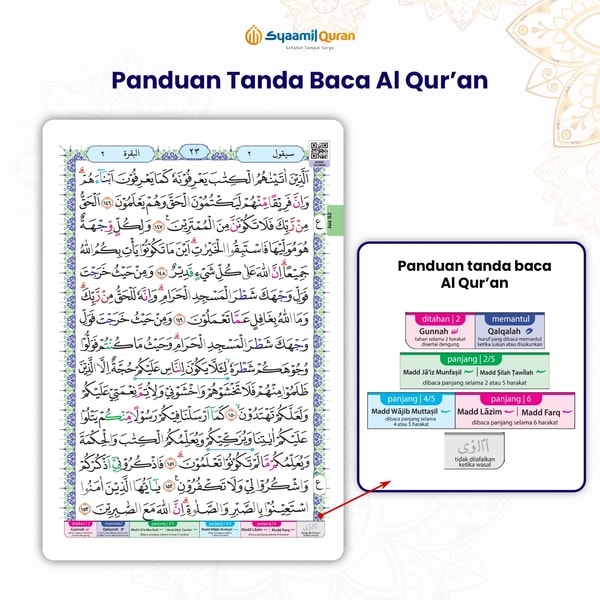 Syaamil Quran
Sahabat Sampai Surga
Panduan Tanda Baca Al Qur'an
سيقول ٢
٢٣
البقرة ٢
الَّذِيْنَ اٰتَيْنٰهُمُ الْكِتٰبَ يَعْرِفُوْنَهٗ كَمَا يَعْرِفُوْنَ اَبْنَاۤءَهُمْۗ
وَاِنَّ فَرِيْقًا مِّنْهُمْ لَيَكْتُمُوْنَ الْحَقَّ وَهُمْ يَعْلَمُوْنَ ١٤٦ اَلْحَقُّ
مِنْ رَّبِّكَ فَلَا تَكُوْنَنَّ مِنَ الْمُمْتَرِيْنَ ١٤٧ وَلِكُلٍّ وِّجْهَةٌ
هُوَ مُوَلِّيْهَا فَاسْتَبِقُوا الْخَيْرٰتِۗ اَيْنَ مَا تَكُوْنُوْا يَأْتِ بِكُمُ اللّٰهُ
جَمِيْعًاۗ اِنَّ اللّٰهَ عَلٰى كُلِّ شَيْءٍ قَدِيْرٌ ١٤٨ وَمِنْ حَيْثُ خَرَجْتَ
فَوَلِّ وَجْهَكَ شَطْرَ الْمَسْجِدِ الْحَرَامِۗ وَاِنَّهٗ لَلْحَقُّ مِنْ رَّبِّكَۗ
وَمَا اللّٰهُ بِغَافِلٍ عَمَّا تَعْمَلُوْنَ ١٤٩ وَمِنْ حَيْثُ خَرَجْتَ فَوَلِّ
وَجْهَكَ شَطْرَ الْمَسْجِدِ الْحَرَامِۗ وَحَيْثُ مَا كُنْتُمْ فَوَلُّوْا
وُجُوْهَكُمْ شَطْرَهٗۙ لِئَلَّا يَكُوْنَ لِلنَّاسِ عَلَيْكُمْ حُجَّةٌ اِلَّا الَّذِيْنَ
ظَلَمُوْا مِنْهُمْ فَلَا تَخْشَوْهُمْ وَاخْشَوْنِيْ وَلِاُتِمَّ نِعْمَتِيْ عَلَيْكُمْ
وَلَعَلَّكُمْ تَهْتَدُوْنَۙ ١٥٠ كَمَآ اَرْسَلْنَا فِيْكُمْ رَسُوْلًا مِّنْكُمْ يَتْلُوْا
عَلَيْكُمْ اٰيٰتِنَا وَيُزَكِّيْكُمْ وَيُعَلِّمُكُمُ الْكِتٰبَ وَالْحِكْمَةَ
وَيُعَلِّمُكُمْ مَّا لَمْ تَكُوْنُوْا تَعْلَمُوْنَۗ ١٥١ فَاذْكُرُوْنِيْٓ اَذْكُرْكُمْ
وَاشْكُرُوْا لِيْ وَلَا تَكْفُرُوْنِ ١٥٢ يٰٓاَيُّهَا الَّذِيْنَ اٰمَنُوا
اسْتَعِيْنُوْا بِالصَّبْرِ وَالصَّلٰوةِۗ اِنَّ اللّٰهَ مَعَ الصّٰبِرِيْنَ ١٥٣
ع
ع
Juz 02
Panduan tanda baca
Al Qur'an
ditahan | 2
Gunnah
tahan selama 2 harakat
disertai dengung
memantul
Qalqalah
huruf yang dibaca memantul
ketika sukun atau disukunkan
panjang | 2/5
Madd Jā'iz Munfaṣil | Madd Ṣilah Ṭawīlah
dibaca panjang selama 2 atau 5 harakat
panjang | 4/5
Madd Wājib Muttaṣil
dibaca panjang selama
4 atau 5 harakat
panjang | 6
Madd Lāzim | Madd Farq
dibaca panjang selama 6 harakat
tidak dilafalkan
ketika wasal